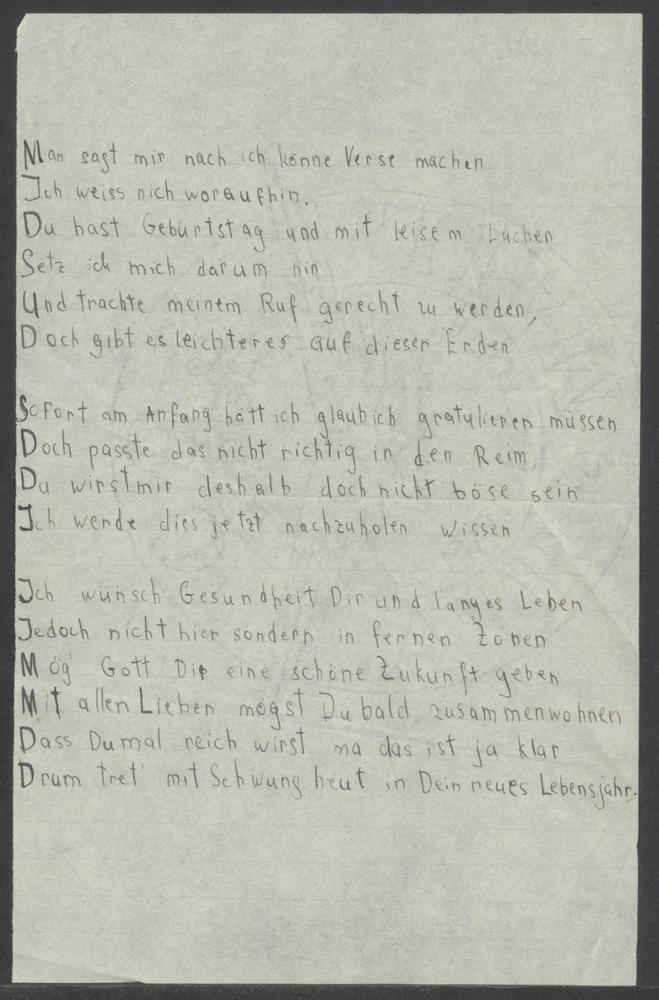 Man sagt mir nach ich könne Verse machen
Ich weiss nich woraufhin.
Du hast Geburtstag und mit leisem Lachen
Setz ich mich darum hin
Und trachte meinem Ruf gerecht zu werden,
Doch gibt es leichteres auf dieser Erden
Sofort am Anfang hätt ich glaub ich gratulieren müssen
Doch passte das nicht richtig in den Reim,
Du wirst mir deshalb doch nicht böse sein
Ich werde dies jetzt nachzuholen wissen
Ich wünsch Gesundheit Dir und langes Leben
Jedoch nicht hier sondern in fernen Zonen
Mög' Gott Dir eine schöne Zukunft geben
Mit allen Lieben mögst Du bald zusammenwohnen
Dass Du mal reich wirst na das ist ja klar
Drum tret' mit Schwung heut in Dein neues Lebensjahr.